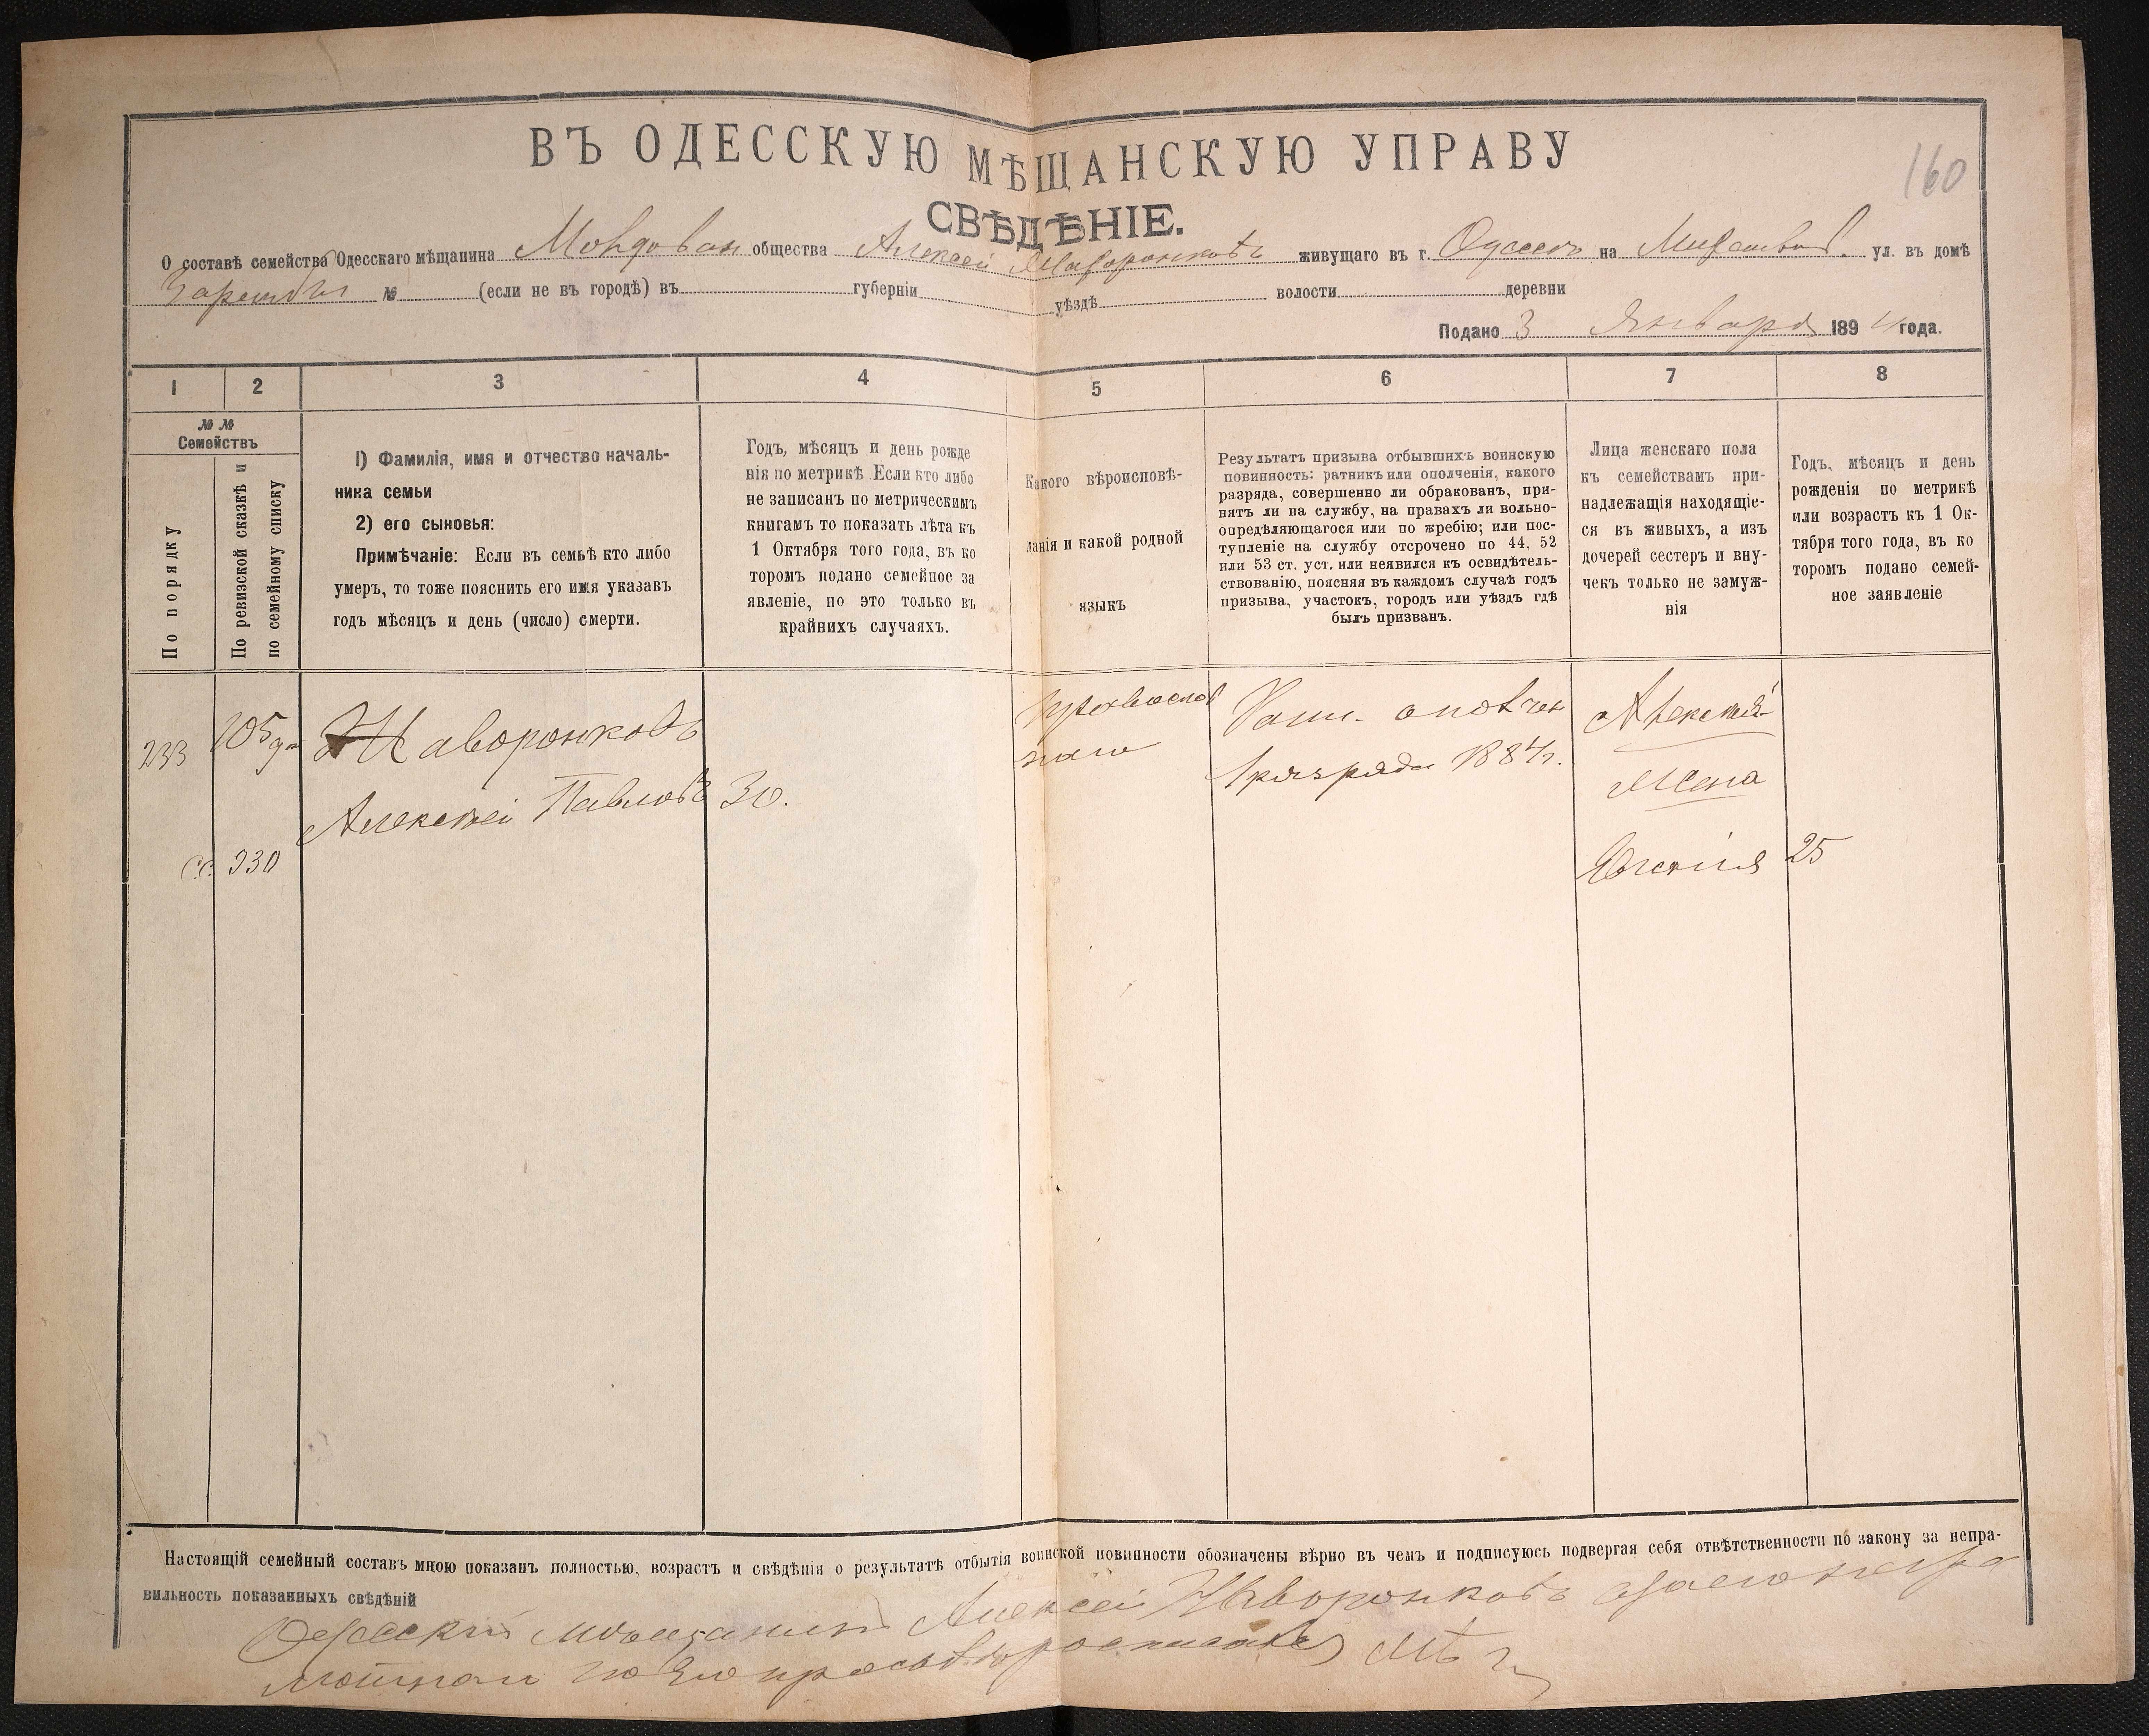 160
ВЪ ОДЕССКУЮ МѢЩАНСКУЮ УПРАВУ
СВѢДѢНІЕ.
О составѣ семейства Одесскаго мѣщанина Молдован общества Алексѣй Жаворонковъ живущаго въ г. Одессѣ на ул. въ домѣ
№ (если не въ городѣ) въ губерніи уѣздѣ волости деревни
Подано 3 Января 1894 года.
1 2 3 4 5 6 7 8
№ №
Семействъ
По порядку
По ревизской сказкѣ и
по семейному списку
1) Фамилія, имя и отчество началь-
ника семьи
2) его сыновья:
Примѣчаніе: Если въ семьѣ кто либо
умеръ, то тоже пояснить его имя указавъ
годъ мѣсяцъ и день (число) смерти.
Годъ, мѣсяцъ и день рожде
нія по метрикѣ. Если кто либо
не записанъ по метрическимъ
книгамъ то показать лѣта къ
1 Октября того года, въ ко
торомъ подано семейное за
явленіе, но это только въ
крайнихъ случаяхъ.
Какого вѣроисповѣ-
данія и какой родной
языкъ
Результатъ призыва отбывшихъ воинскую
повинность: ратникъ или ополченія, какого
разряда, совершенно ли обракованъ, при-
нятъ ли на службу, на правахъ ли вольно-
опредѣляющагося или по жребію; или пос-
тупленіе на службу отсрочено по 44, 52
или 53 ст. уст. или неявился къ освидѣтель-
ствованію, поясняя въ каждомъ случаѣ годъ
призыва, участокъ, городъ или уѣздъ гдѣ
былъ призванъ.
Лица женскаго пола
къ семействамъ при-
надлежащія находящіе-
ся въ живыхъ, а изъ
дочерей сестеръ и вну-
чекъ только не замуж-
нія
Годъ, мѣсяцъ и день
рожденія по метрикѣ
или возрастъ къ 1 Ок-
тября того года, въ ко
торомъ подано семей-
ное заявленіе
233 105 Жаворонковъ
Алексѣй Павловъ 30.
930
Православ
наго
Рат. ополчен
1 разряда 1884 г.
Алексѣй
Жена
Евгенія 25
Настоящій семейный составъ мною показанъ полностью, возрастъ и свѣдѣнія о результатѣ отбытія воинской повинности обозначены вѣрно въ чемъ и подписуюсь подвергая себя отвѣтственности по закону за непра-
вильность показанныхъ свѣдѣній
Одесскій мѣщанинъ Алексѣй Жаворонковъ а за его неграмотнаго